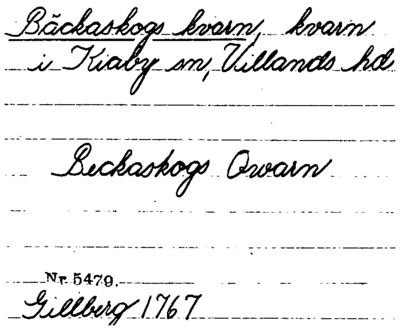 Bäckaskogs kvarn, kvarn
i Kiaby sn, Villands hd
Beckaskogs Qwarn
Nr. 5479.
Gillberg 1767